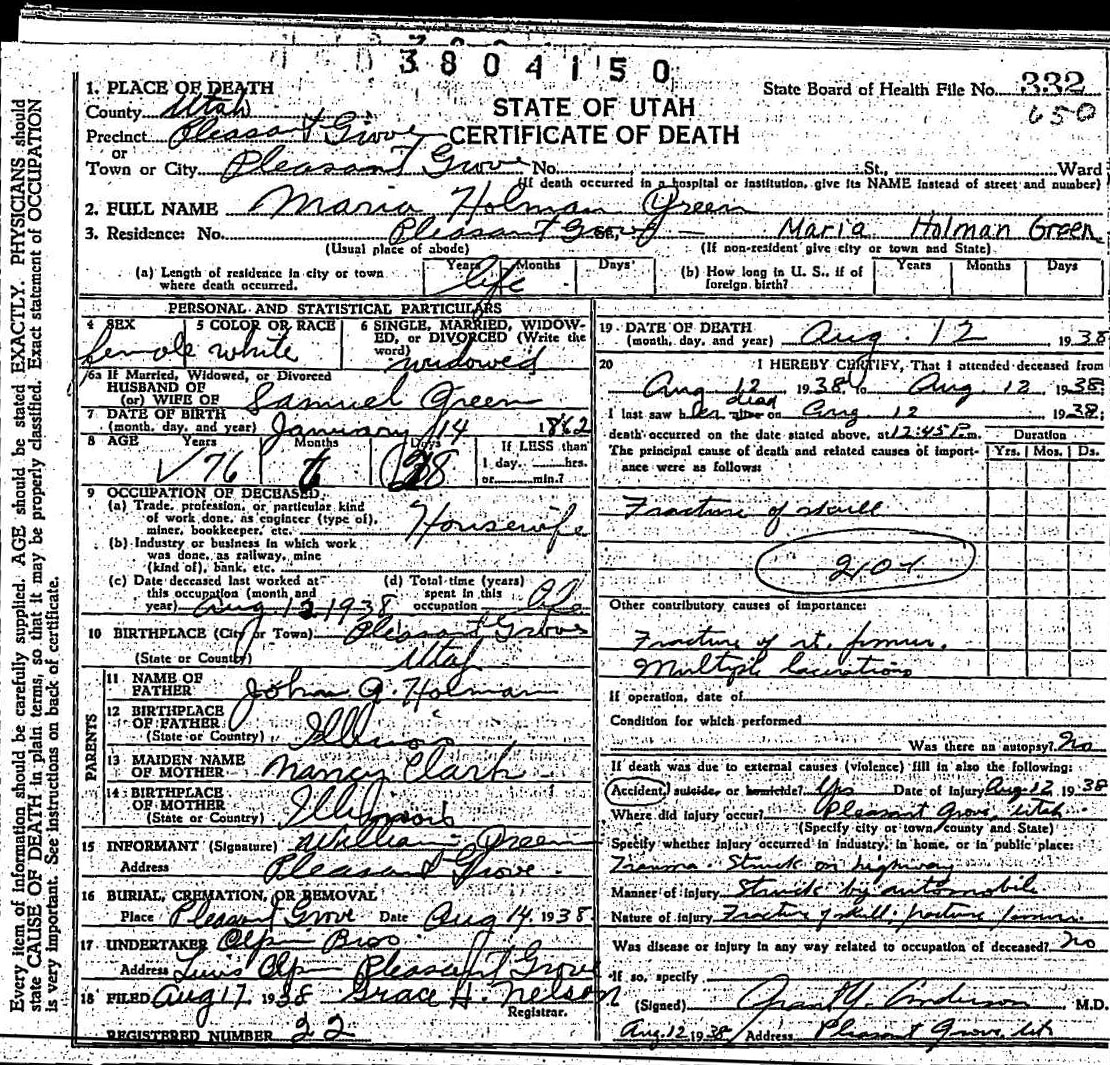 3804150
State Board of Health File No. 332
650
1. PLACE OF DEATH
County Utah
STATE OF UTAH
Precinct Pleasant Grove
CERTIFICATE OF DEATH
or
Town or City Pleasant Grove No. St., Ward
(If death occurred in a hospital or institution, give its NAME instead of street and number)
2. FULL NAME Maria Holman Green
3. Residence: No. Pleasant Grove St., Maria Holman Green
(Usual place of abode) (If non-resident give city or town and State)
(a) Length of residence in city or town where death occurred. Years Months Days life
(b) How long in U. S., if of foreign birth? Years Months Days
PERSONAL AND STATISTICAL PARTICULARS
4 SEX 5 COLOR OR RACE 6 SINGLE, MARRIED, WIDOW-
ED, or DIVORCED (Write the
word)
female white widowed
6a If Married, Widowed, or Divorced
HUSBAND OF
(or) WIFE OF Samuel Green
7 DATE OF BIRTH
(month, day, and year) January 14 1862
8 AGE Years Months Days If LESS than
76 6 28 1 day, hrs.
or min.?
9 OCCUPATION OF DECEASED.
(a) Trade, profession, or particular kind
of work done, as engineer (type of),
miner, bookkeeper, etc. Housewife
(b) Industry or business in which work
was done, as railway, mine
(kind of), bank, etc.
(c) Date deceased last worked at
this occupation (month and
year) Aug 12 1938
(d) Total time (years)
spent in this
occupation life
10 BIRTHPLACE (City or Town) Pleasant Grove
(State or Country) Utah
PARENTS
11 NAME OF
FATHER John G. Holman
12 BIRTHPLACE
OF FATHER
(State or Country) Illinois
13 MAIDEN NAME
OF MOTHER Nancy Clark
14 BIRTHPLACE
OF MOTHER
(State or Country) Illinois
15 INFORMANT (Signature) William Green
Address Pleasant Grove
16 BURIAL, CREMATION, OR REMOVAL
Place Pleasant Grove Date Aug 14, 1938
17 UNDERTAKER Olpin Bros
Address Pleasant Grove
18 FILED Aug 17 1938 Grace H. Nelson
Registrar.
REGISTERED NUMBER 22
19 DATE OF DEATH
(month, day, and year) Aug. 12 1938
20 I HEREBY CERTIFY, That I attended deceased from
Aug 12 1938 to Aug 12 1938;
dead
I last saw her alive on Aug 12 1938;
death occurred on the date stated above, at 12:45 P.m.
Duration
The principal cause of death and related causes of import-
ance were as follows:
Yrs. Mos. Ds.
Fracture of skull
Other contributory causes of importance:
Fracture of rt. femur.
Multiple lacerations
If operation, date of
Condition for which performed
Was there an autopsy? No
If death was due to external causes (violence) fill in also the following:
Accident, suicide, or homicide? Yes Date of injury Aug 12, 1938
Where did injury occur? Pleasant Grove, Utah
(Specify city or town, county and State)
Specify whether injury occurred in industry, in home, or in public place:
Trauma. Struck on highway
Manner of injury Struck by automobile
Nature of injury Fracture of skull; fracture femur.
Was disease or injury in any way related to occupation of deceased? No
If so, specify
(Signed) Grant Y. Anderson M.D.
Aug. 12 1938 Address Pleasant Grove, Ut
Every item of information should be carefully supplied. AGE should be stated EXACTLY. PHYSICIANS should
state CAUSE OF DEATH in plain terms, so that it may be properly classified. Exact statement of OCCUPATION
is very important. See instructions on back of certificate.